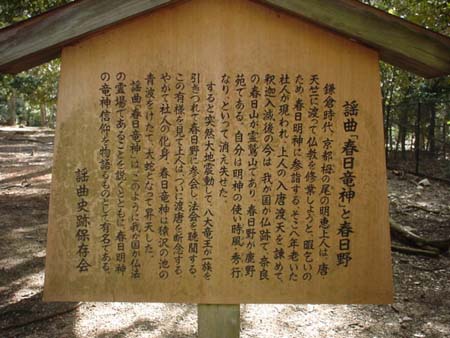 謡曲「春日竜神」と春日野
鎌倉時代、京都栂の尾の明恵上人は、唐・
天竺に渡って仏教を修業しようと、暇乞いの
ため、春日明神に参詣する。そこへ年老いた
社人が現われ、上人の入唐渡天を諌めて、
釈迦入滅後の今は、我が国が仏跡で、奈良
の春日山が霊鷲山であり、春日野が鹿野
苑である。自分は明神の使い時風・秀行
なり、といって消え失せた。
すると突然大地震動して、八大竜王が一族を
引きつれて春日野に参会し、法会を聴聞する。
この有様を見て上人は、ついに渡唐を断念する。
やがて社人の化身、春日竜神は猿沢の池の
青波をけたて、大蛇となって昇天した。
謡曲「春日竜神」は、このように我が国が仏法
の霊場であることを説くとともに、春日明神
の竜神信仰を物語るものとして有名である。
謡曲史跡保存会